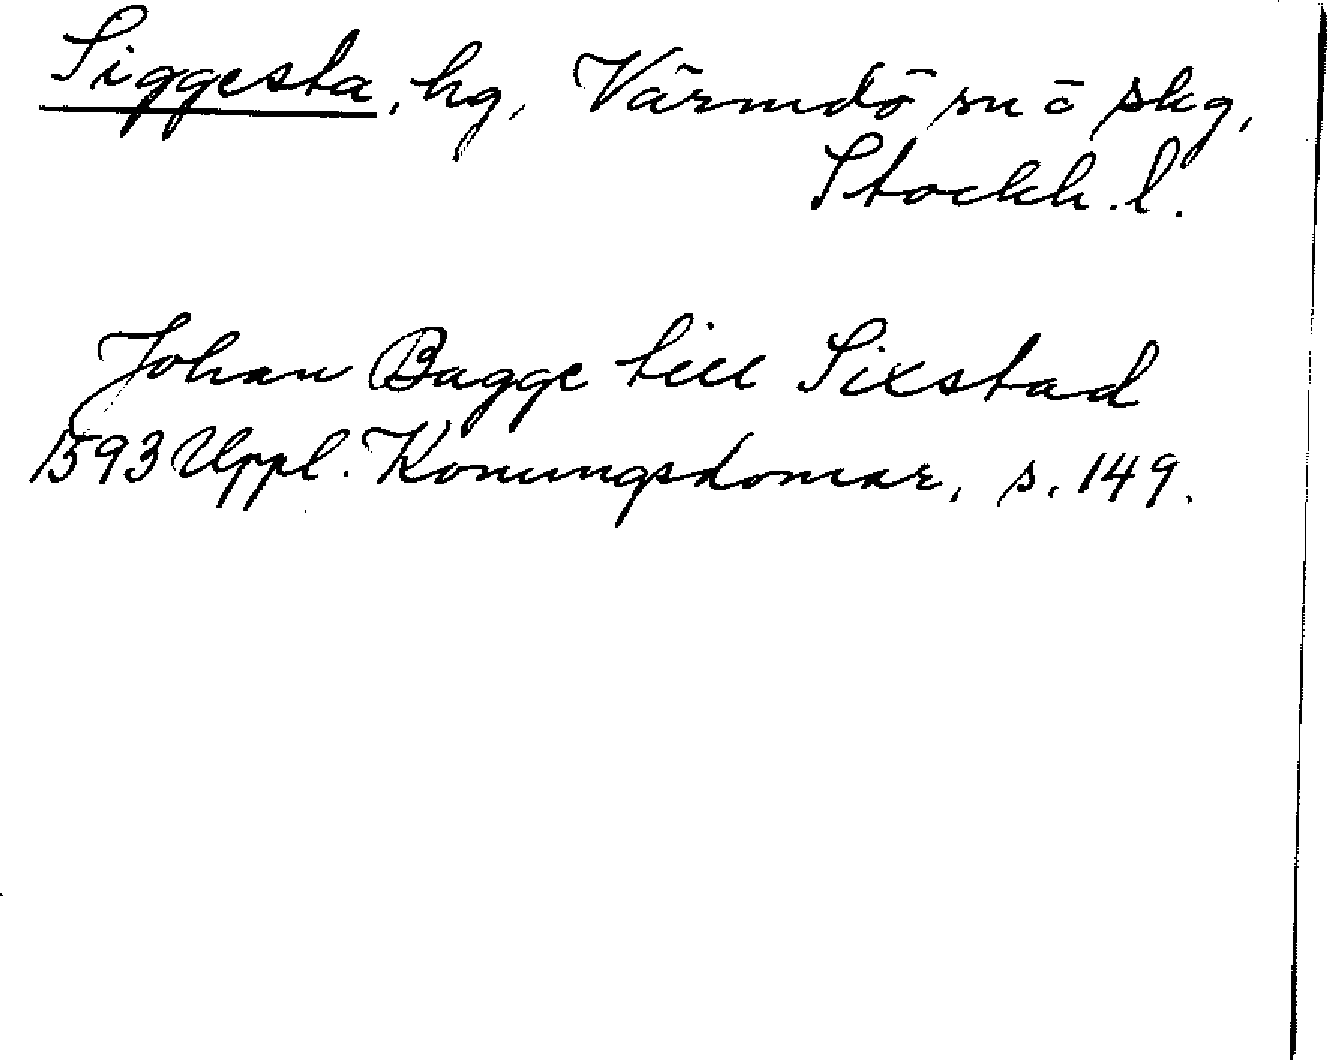 Siggesta, hg, Värmdö sn o skg,
Stockh. l.
Johan Bagge till Sixstad
1593 Uppl. Konungsdomar, s. 149.